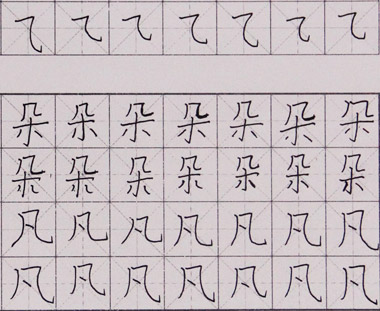 ㇍㇍㇍㇍㇍㇍㇍
朵朵朵朵朵朵朵
朵朵朵朵朵朵朵
凡凡凡凡凡凡凡
凡凡凡凡凡凡凡